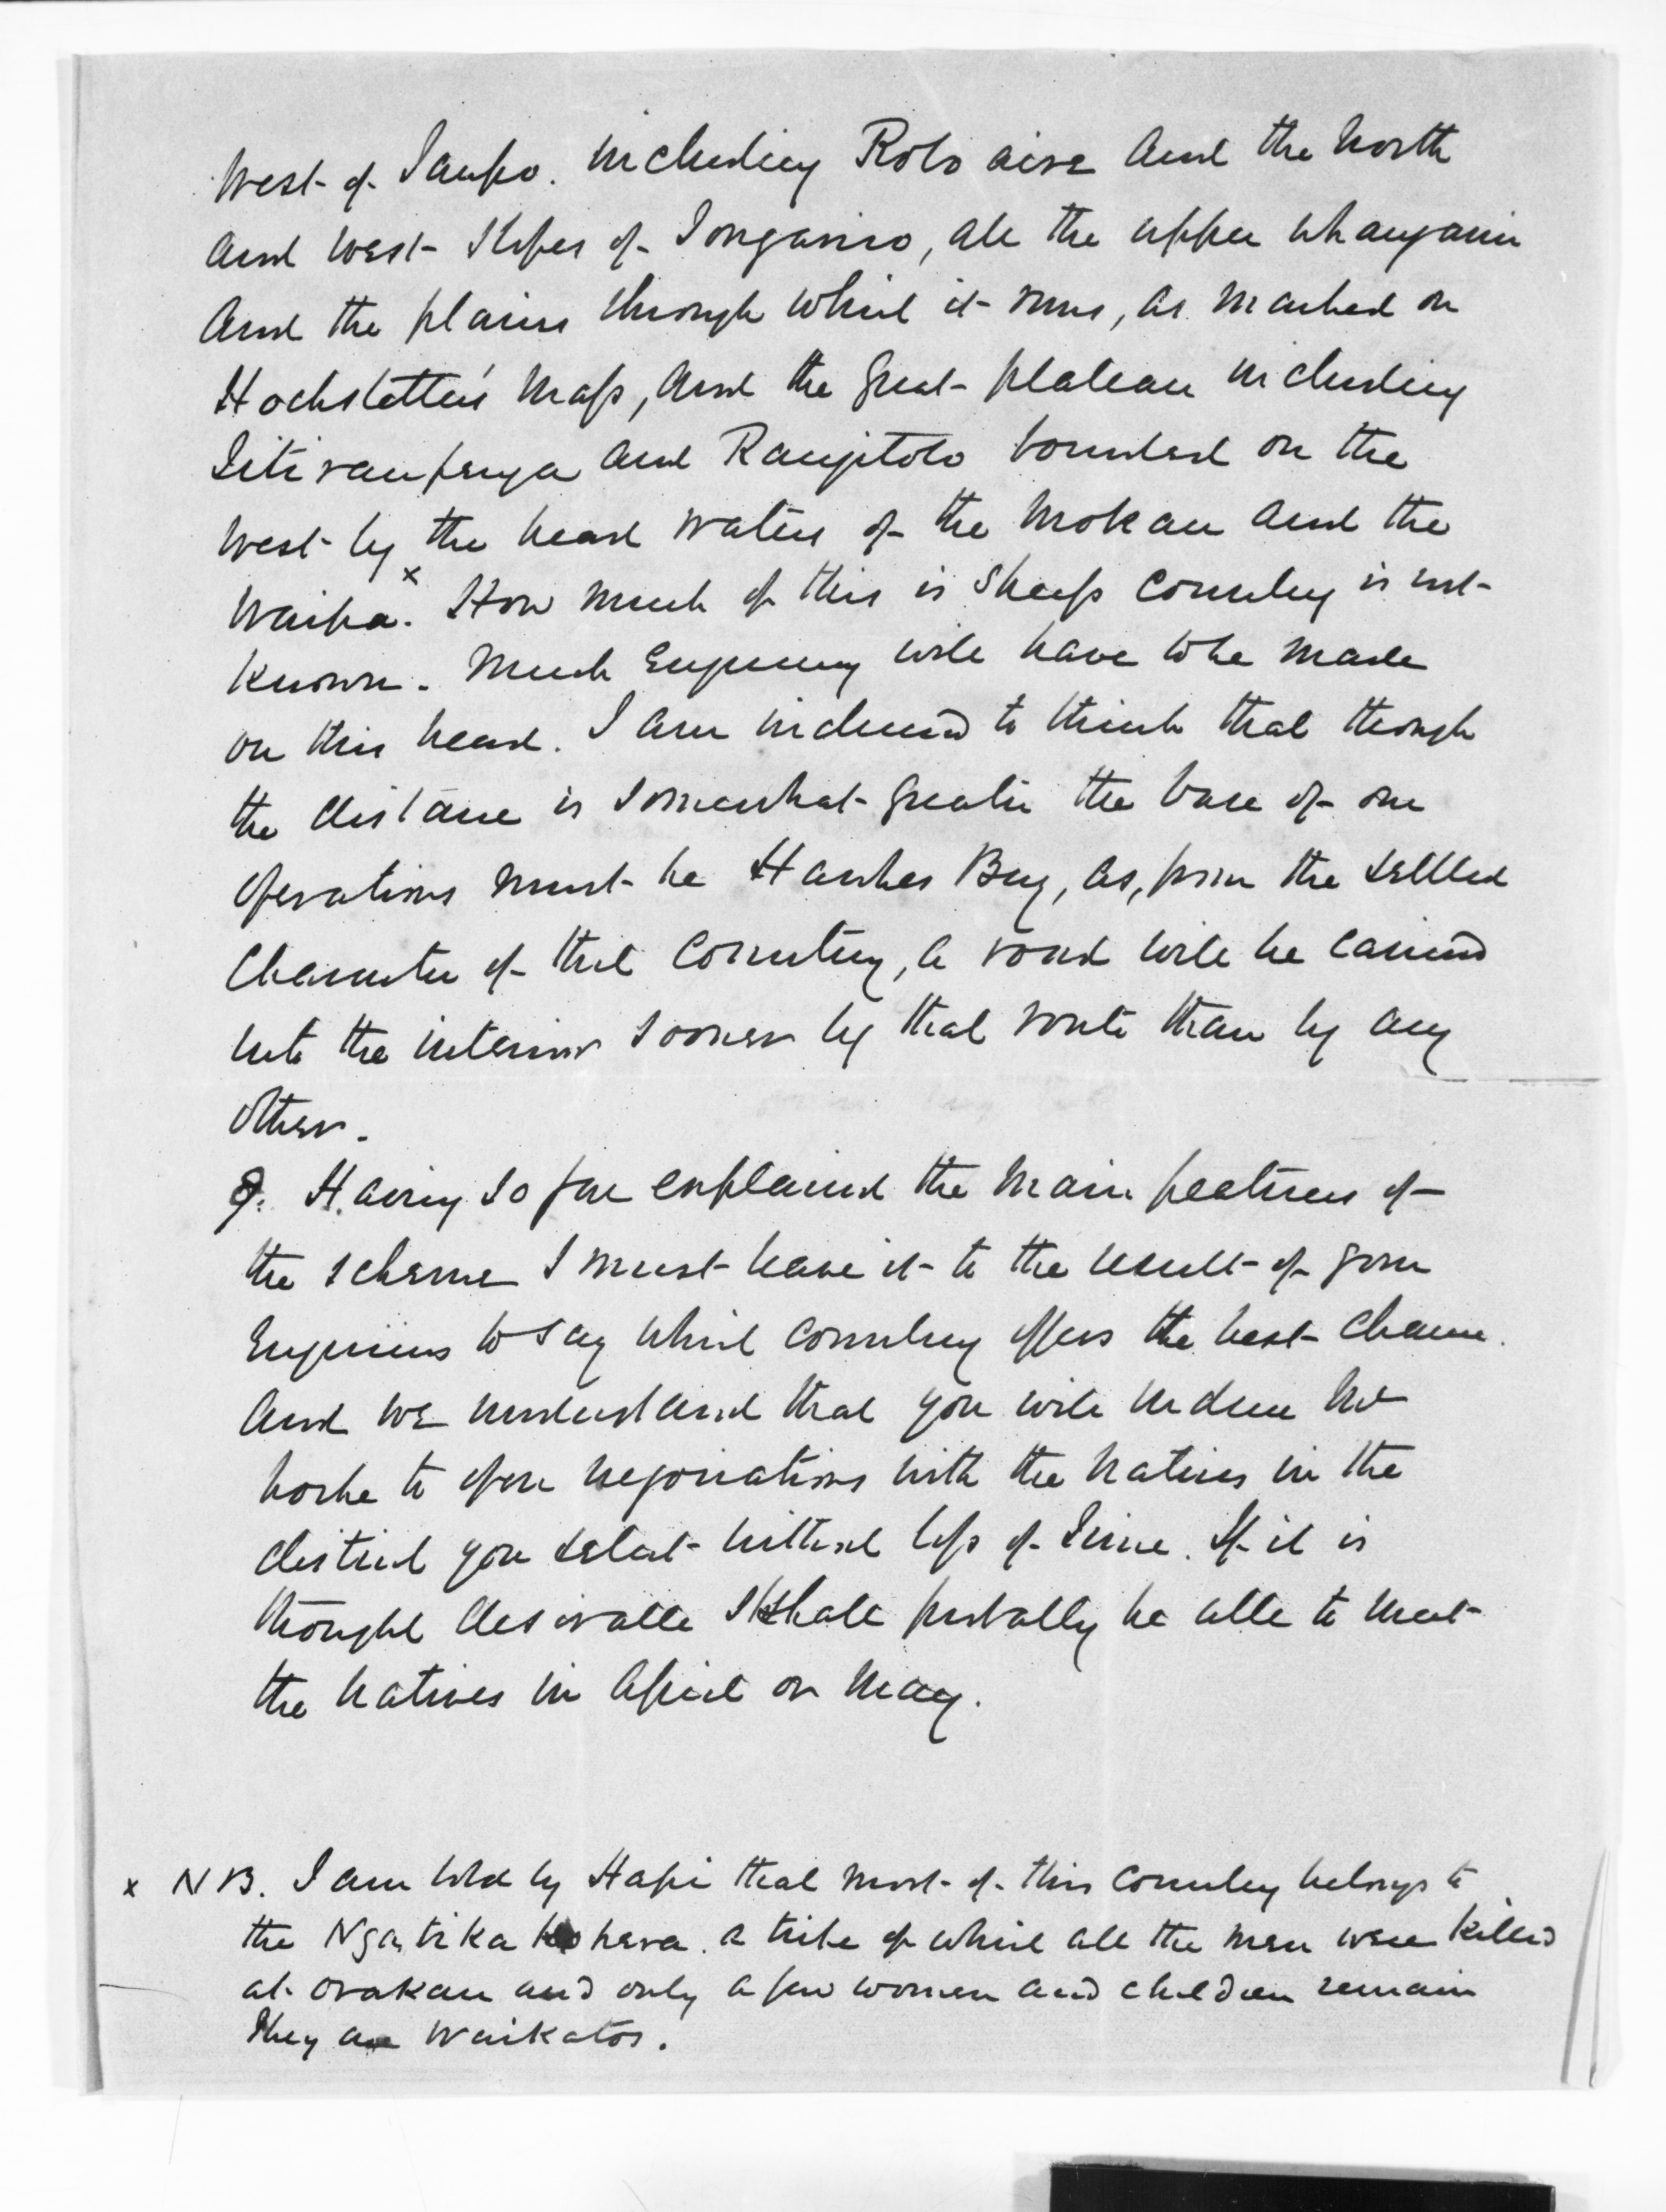 West of Taupo. including Roto aira and the North
and West Slopes of Tongariro, all the upper Whanganui
and the plains through which it runs, as marked on
Hochstetter's Map, and the great plateau including
Titiraupenga and Rangitoto bounded on the
West by the head waters of the Mokau and the
Waipa.x How much of this is Sheep Country is not
known. Much Enquiry will have to be made
on this head. I am inclined to think that though
the distance is somewhat greater the base of our
operations must be Hawkes Bay, as, from the settled
Character of that Country, a road will be carried
into the interior sooner by that route than by any
other.
9. Having so far explained the main features of
the scheme I must leave it to the result of your
Enquiries to say which Country offers the best chance.
And we understand that you will induce
to open negociations with the Natives in the
district you select without loss of Time. If it is
thought desirable I shall probably be able to meet
the Natives in April or May.
x NB. I am told by Hapi that most of this Country belongs to
the Ngatika hera. a tribe of which all the men were killed
at Orakau and only a few women and children remain
They are Waikatos.